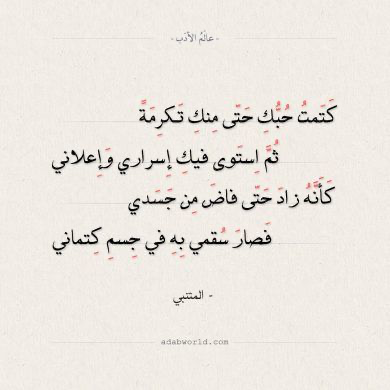 - عالَمُ الأدَب -
كَتَمتُ حُبُّكِ حَتّى مِنكِ تَكرِمَةً
ثُمَّ اِستَوى فيكِ إِسراري وَإِعلاني
كَأَنَّهُ زادَ حَتّى فاضَ مِن جَسَدي
فَصارَ سُقمي بِهِ في جِسمِ كِتماني
- المتنبي
adabworld.com